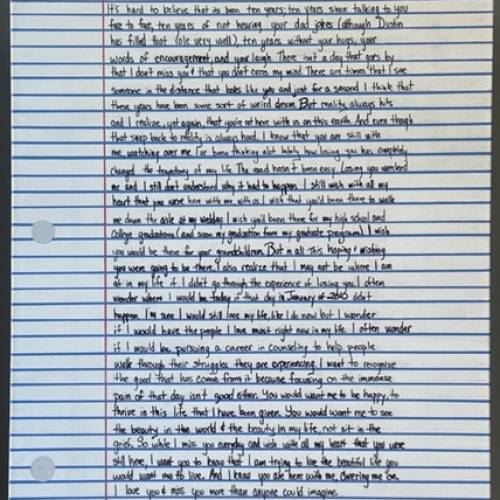 It's hard to believe that its been ten years; ten years since talking to you
face to face, ten years of not hearing your dad jokes (although Dustin
has filled that role very well), ten years without your hugs, your
words of encouragement, and your laugh. There isn't a day that goes by
that I don't miss you & that you don't cross my mind. There are times that I see
someone in the distance that looks like you and just for a second I think that
these years have been some sort of weird dream. But reality always hits
and I realize, yet again, that you're not here with us on this earth. And even though
that snap back to reality is always hard, I know that you are still with
me, watching over me. I've been thinking alot lately how losing you has completely
changed the trajectory of my life. The road hasn't been easy. Losing you
me and I still don't understand why it had to happen. I still wish with all my
heart that you were here with me, with us. I wish that you'd been there to walk
me down the aisle at my wedding. I wish you'd been there for my high school and
college graduations (and soon my graduation from my graduate program). I wish
you would be there for your grandchildren. But in all this hoping & wishing
you were going to be there, I also realize that I may not be where I am
at in my life if I didn't go through the experience of losing you. I often
wonder where I would be today if that day in January of 2010 didn't
happen. I'm sure I would still love my life, like I do now but I wonder
if I would have the people I love most right now in my life. I often wonder
if I would be pursuing a career in counseling to help people
walk through their struggles they are experiencing. I want to recognize
the good that has come from it because focusing on the immense
pain of that day isn't good either. You would want me to be happy, to
thrive in this life that I have been given. You would want me to see
the beauty in the world & the beauty in my life, not sit in the
grief. So while I miss you everyday and wish with all my heart that you were
still here, I want you to know that I am trying to live the beautiful life you
would want me to live. And I know you are here with me, cheering me on.
I love you & miss you more than anyone could imagine.